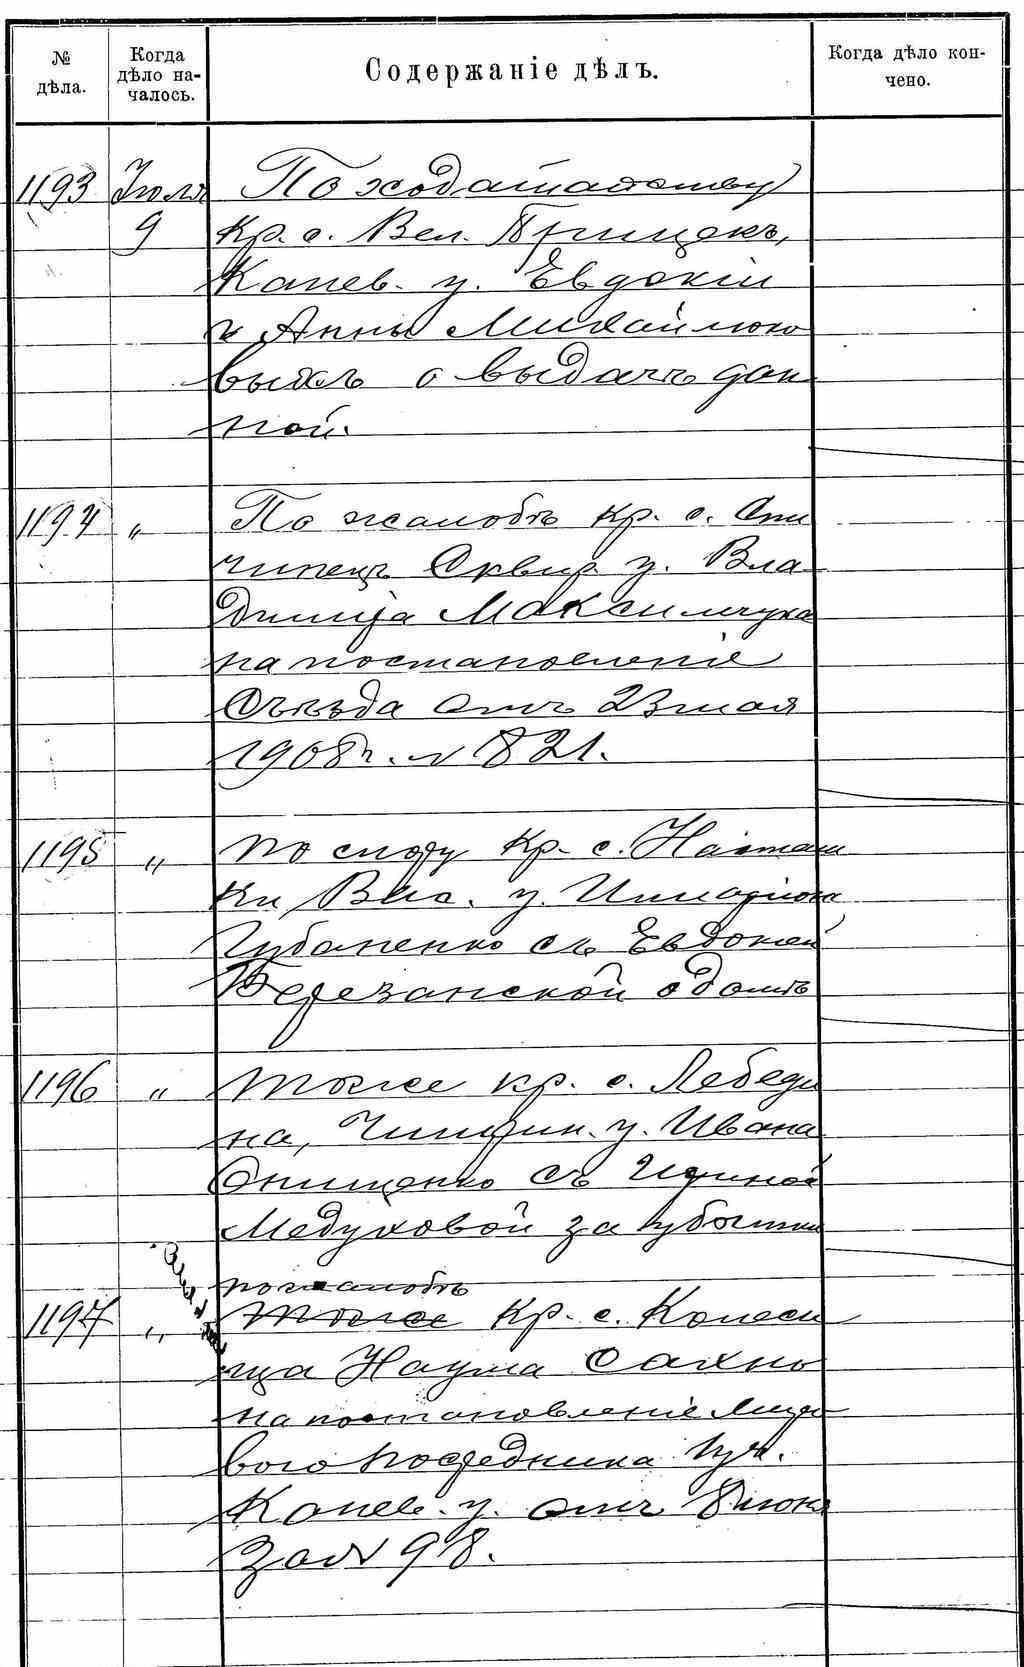 № дѣла.
Когда дѣло началось.
Содержаніе дѣлъ.
Когда дѣло кончено.
1193 Іюля По ходатайству
9 Кр. с. Вел. Прицекъ,
Канев. у. Евдокіи
и Анны Михайлюко
выхъ о выдачѣ дан
ной.
1194 " По жалобѣ кр. с. Спи
чинецъ Сквир. у. Вла
димира Максимчука
на постановленіе
Съѣзда отъ 23 мая
1908 г. № 821.
1195 " По спору Кр. с. Насташ
ки Вас. у. Иларіона
Губаненко съ Евдокіей
Березанской о домѣ
1196 " тоже кр. с. Лебеди
на, Чигирин. у. Ивана
Онищенко съ Ириной
Медуховой за убытки
по жалобѣ
1197 " тоже Кр. с. Колеси
ща Наума Сахно
на постановленіе Миро
вого посредника 1 уч.
Канев. у. отъ 8 июня
за № 98.